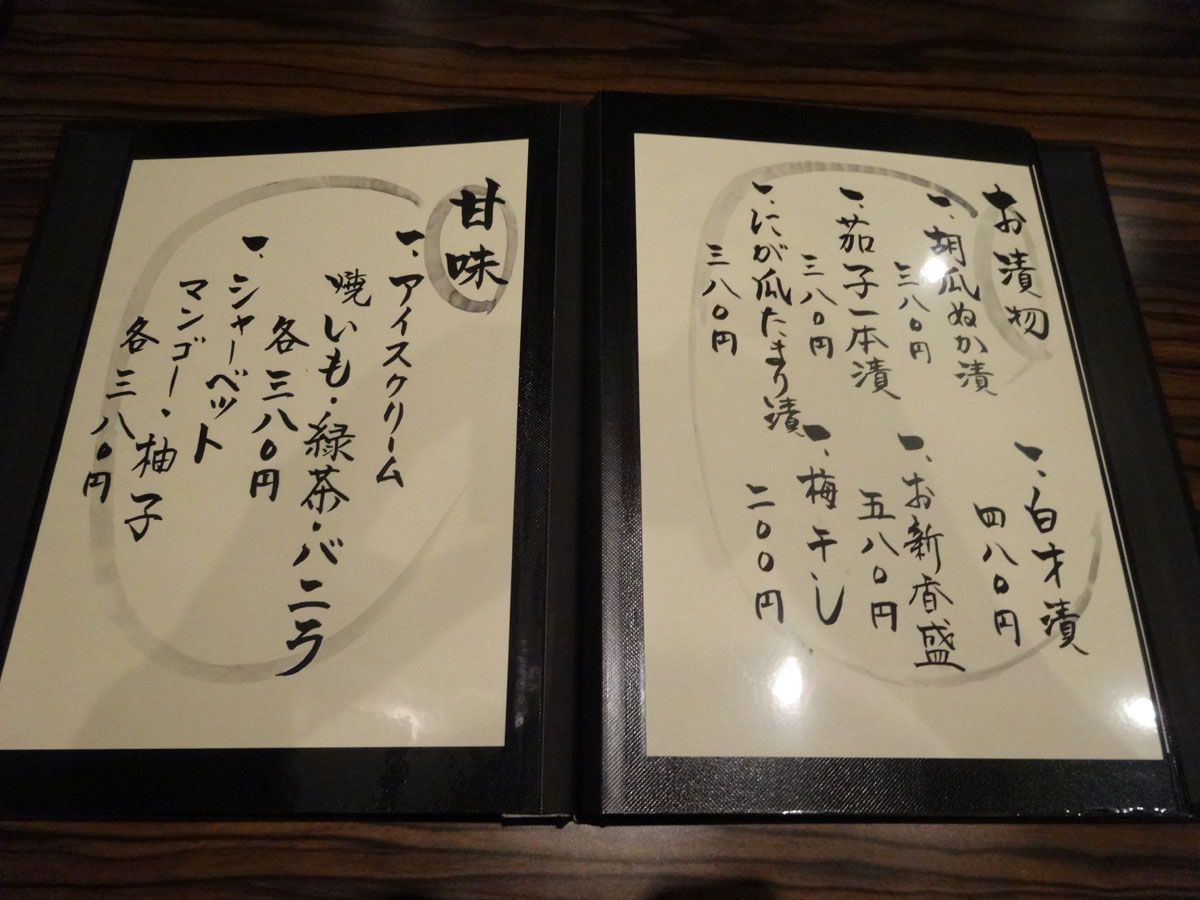 お漬物
一、胡瓜ぬか漬
三八〇円
一、茄子一本漬
三八〇円
一、にが瓜たまり漬
三八〇円
一、白才漬
四八〇円
一、お新香盛
五八〇円
一、梅干し
二〇〇円
甘味
一、アイスクリーム
焼いも・緑茶・バニラ
各三八〇円
一、シャーベット
マンゴー、柚子
各三八〇円